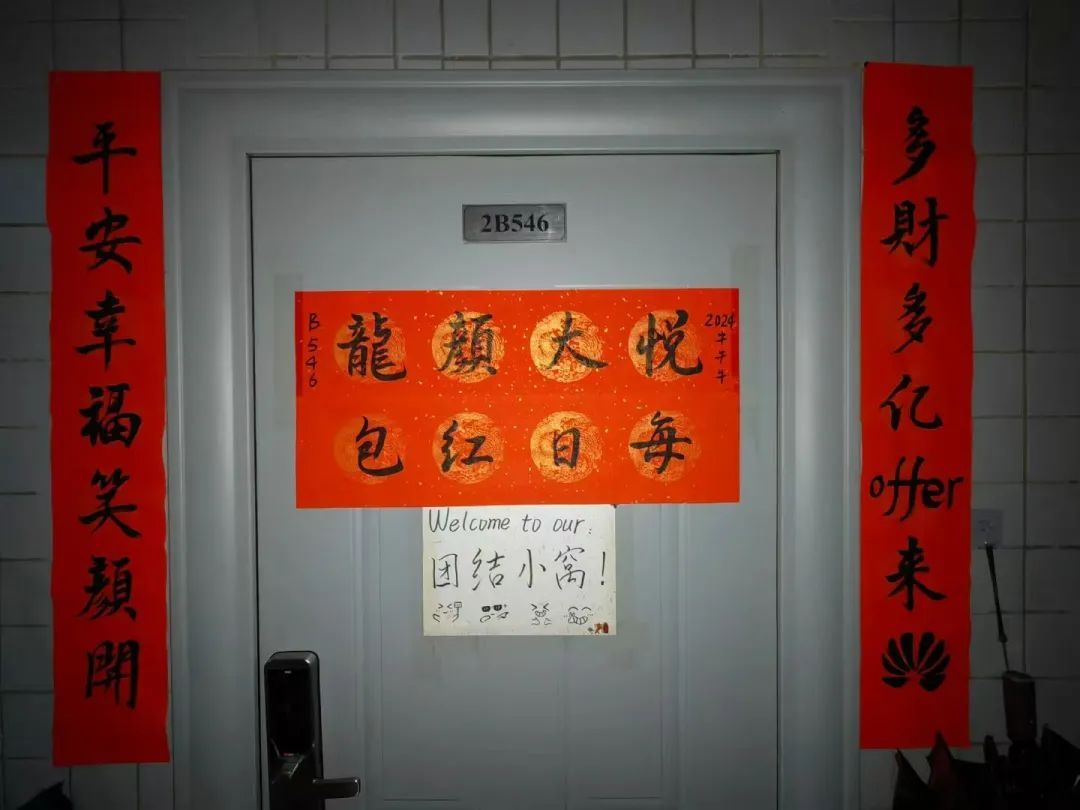 2B546
多財多亿offer来
平安幸福笑顔開
B546
龍顔大悦
2024
每日红包
Welcome to our:
团结小窝!